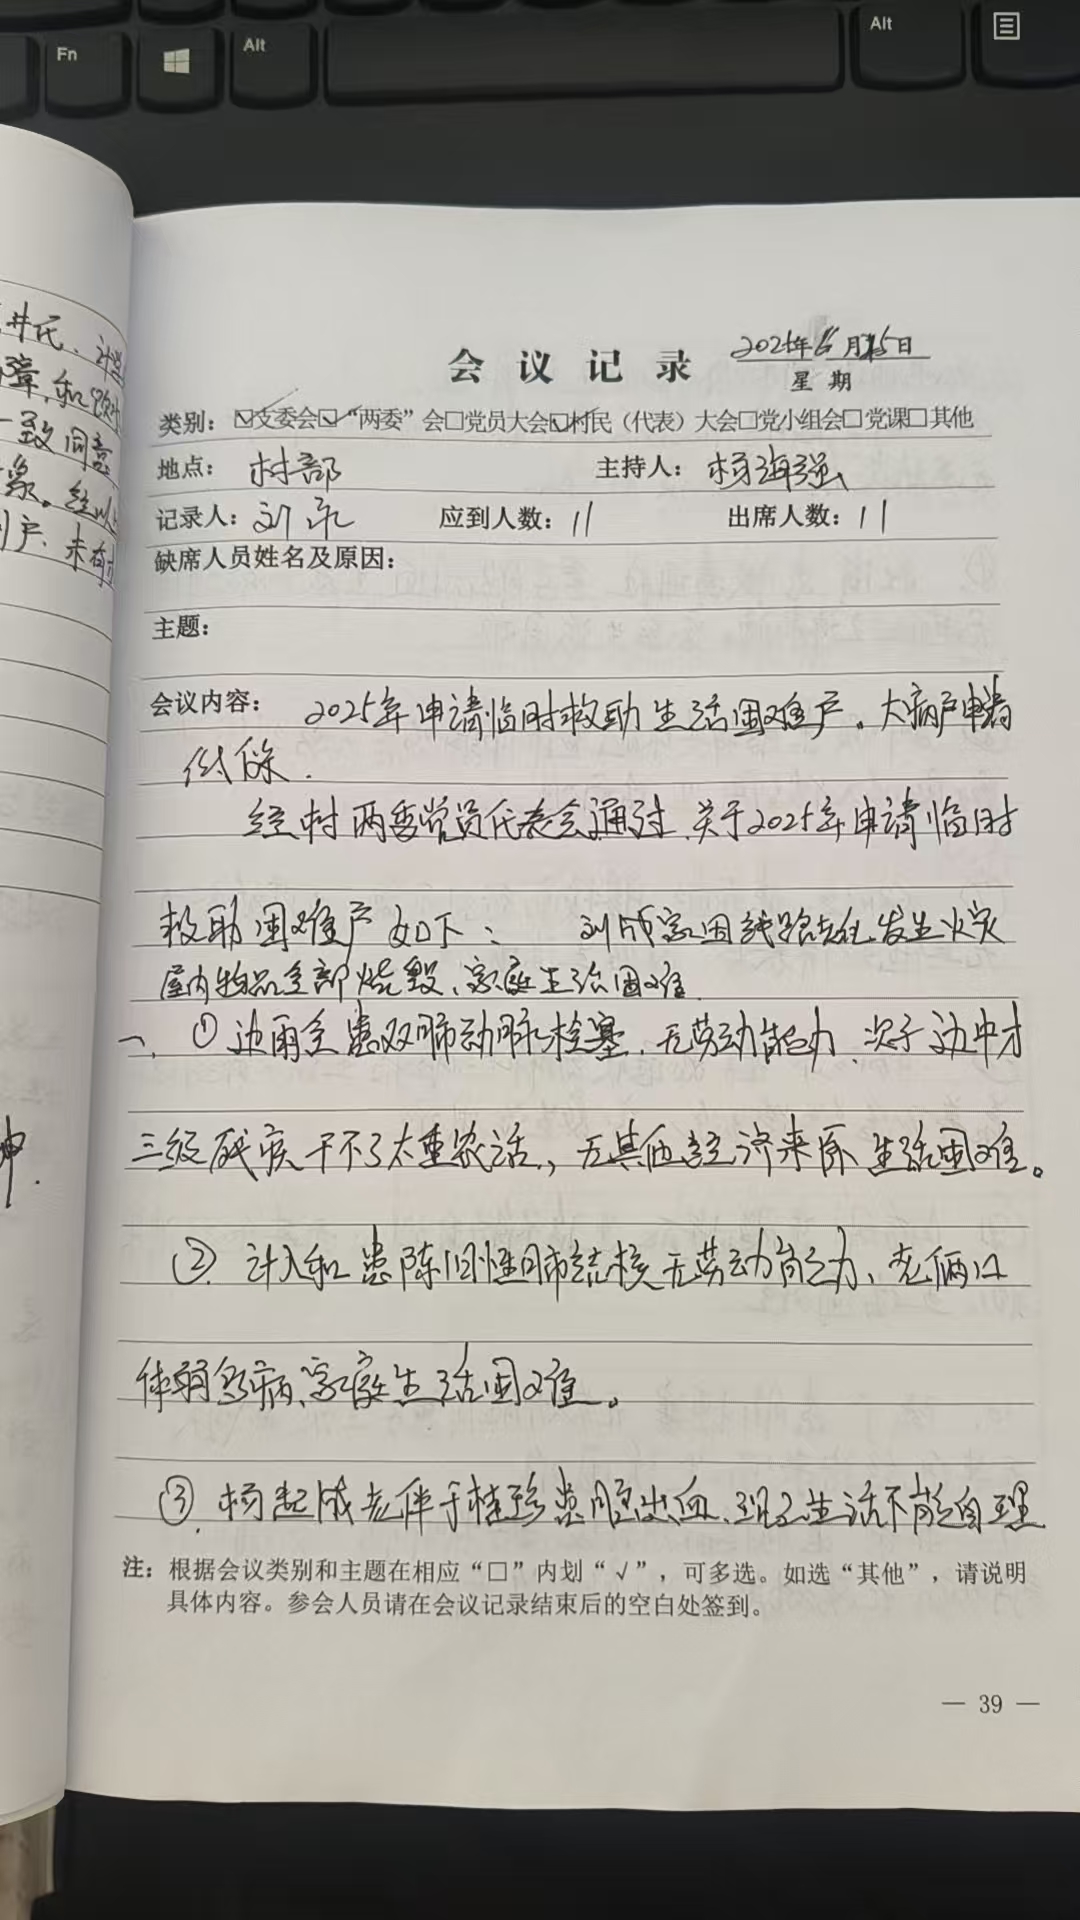 Fn
Alt
Alt
一致同意
会议记录
2025年6月25日
星期
类别：☑支委会☑“两委”会□党员大会☑村民（代表）大会□党小组会□党课□其他
地点：村部 主持人：杨海强
记录人：刘 应到人数：11 出席人数：11
缺席人员姓名及原因：
主题：
会议内容：2025年申请临时救助生活困难户。大病户申请
低保.
经村两委党员代表会通过.关于2025年申请临时
救助困难户如下： 刘成家因线路老化发生火灾
屋内物品全部烧毁、家庭生活困难
一、①边雨全患双肺动脉栓塞.无劳动能力.次子边中才
三级残疾干不了太重农活，无其他经济来原生活困难。
②计入和患陈旧性肺结核无劳动能力、老俩口
体弱多病、家庭生活困难。
③.杨起成老伴于桂珍患脑出血.现在生活不能自理
注：根据会议类别和主题在相应“□”内划“√”，可多选。如选“其他”，请说明
具体内容。参会人员请在会议记录结束后的空白处签到。
— 39 —